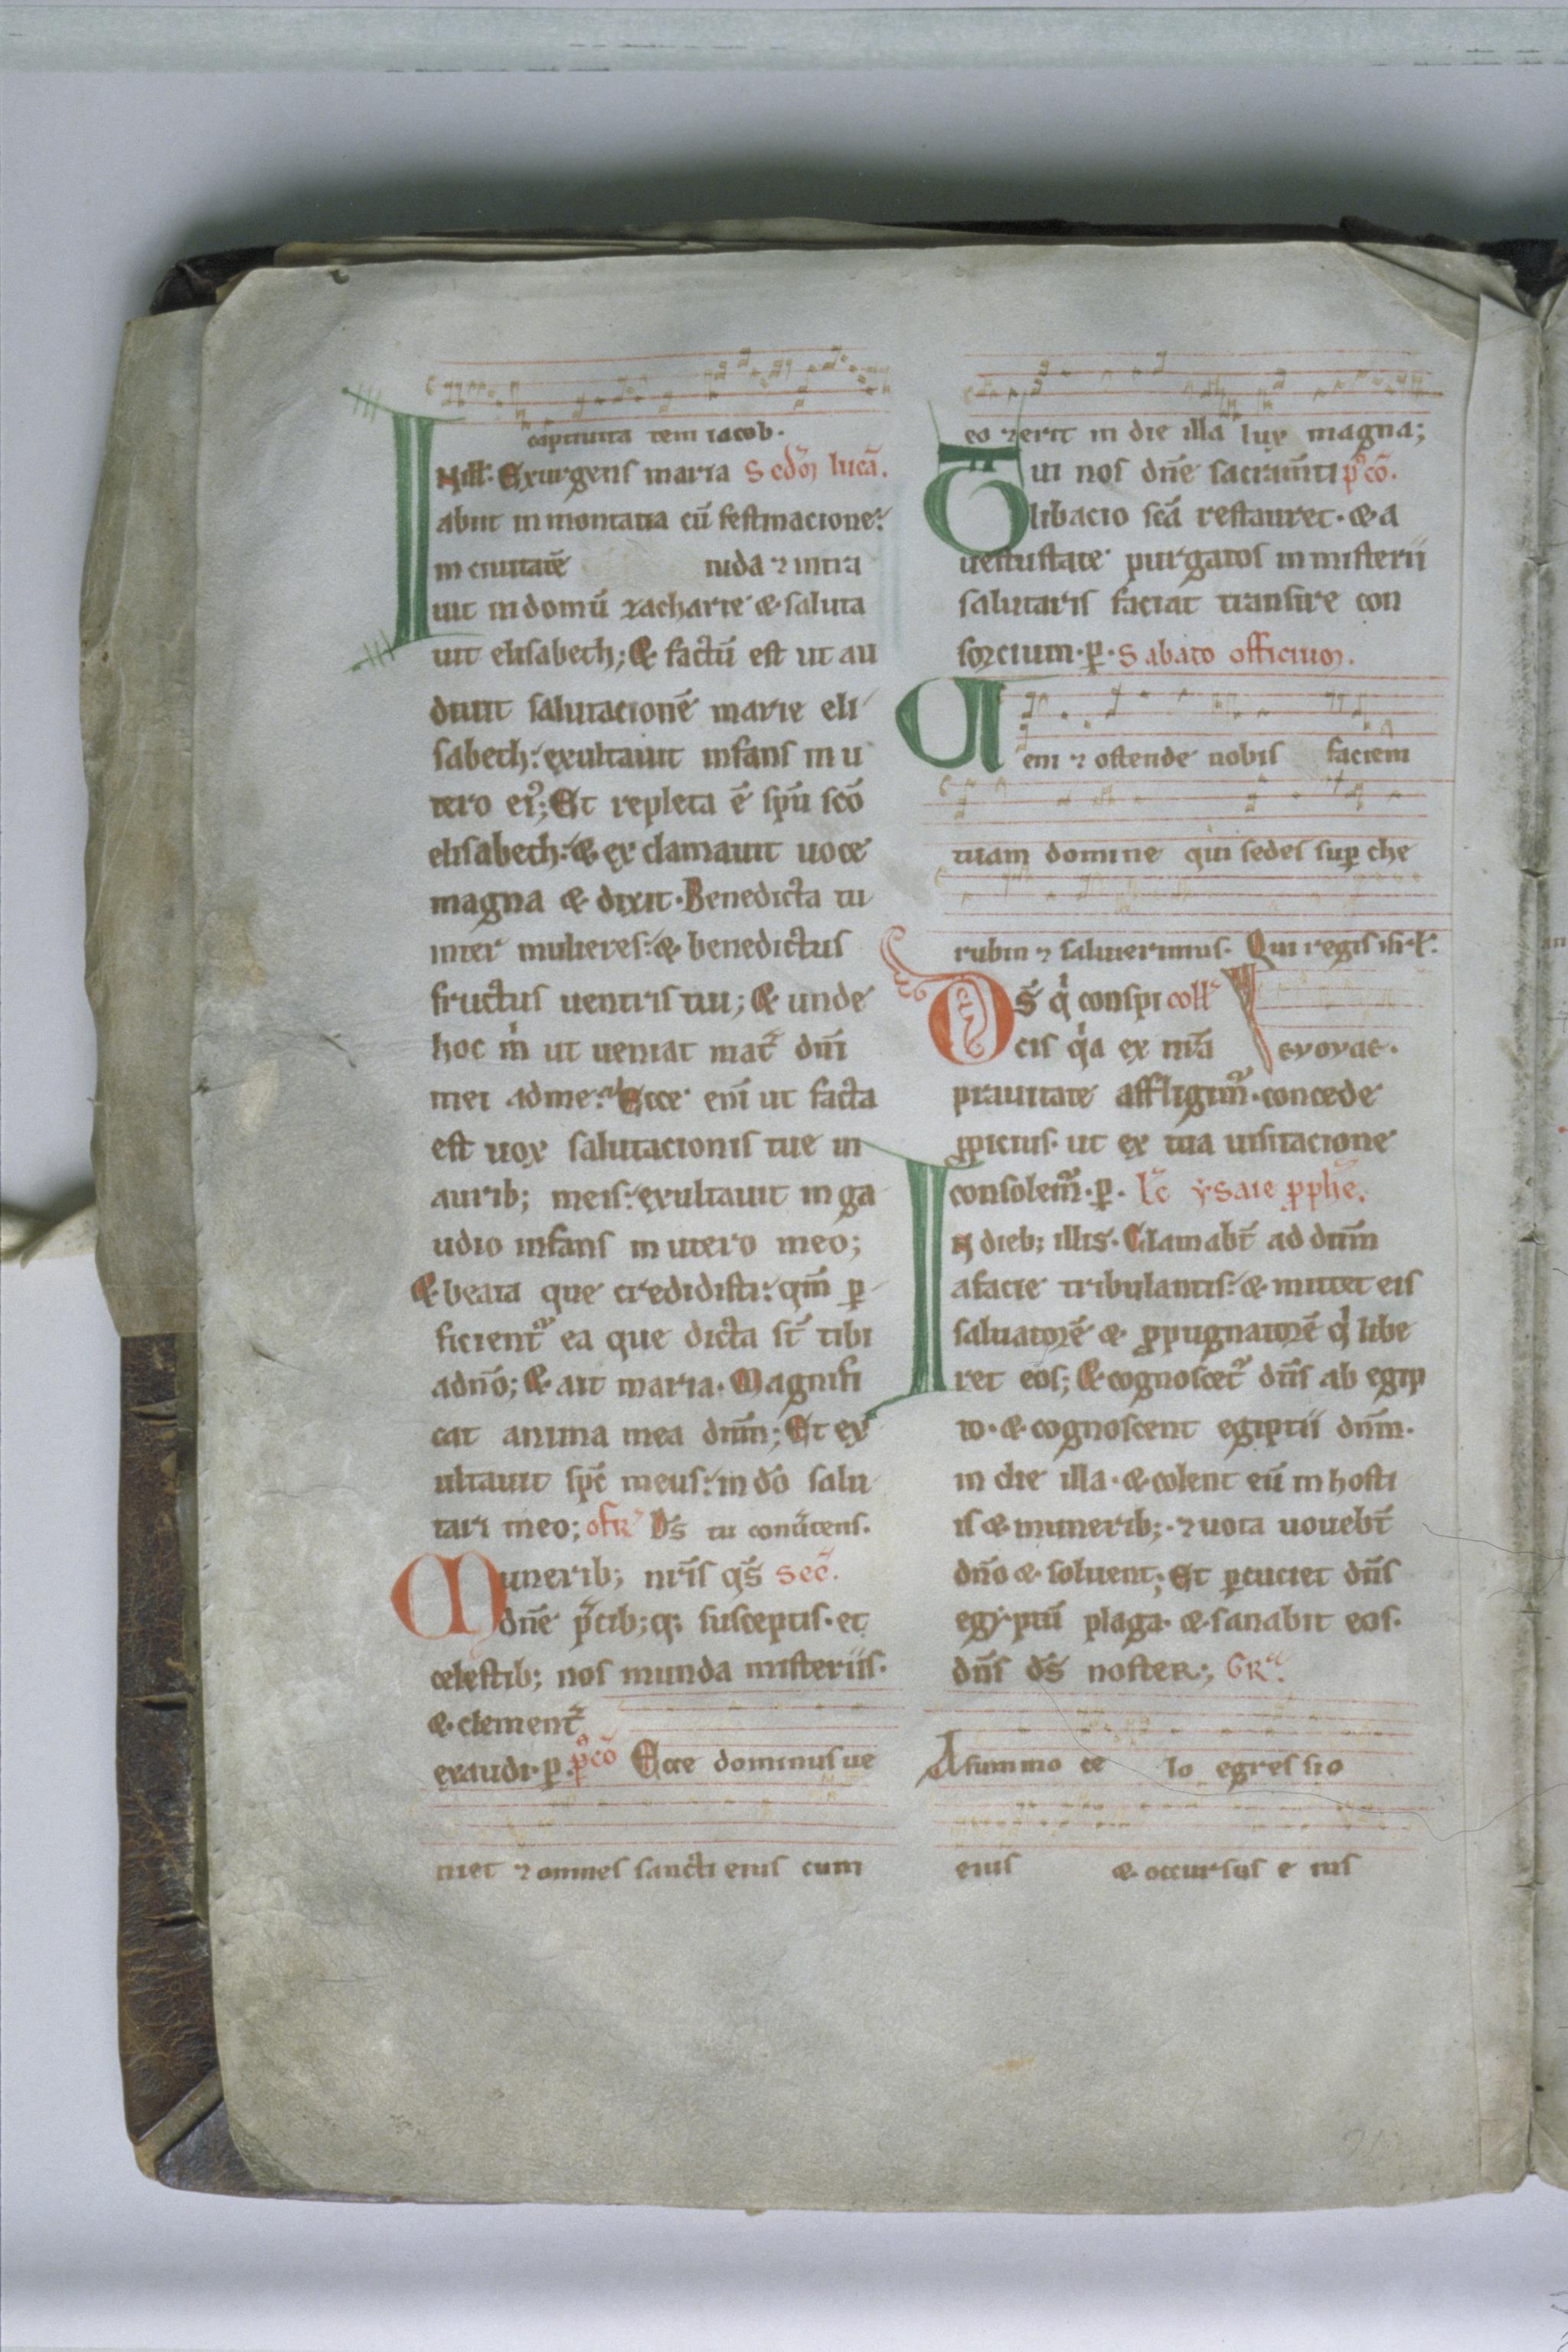 captiuita tem iacob.
In ill'. Exurgens maria Sed'm lucā.
abiit in montana cū festinacione:
in ciuitatē iuda ⁊ intra
uit in domū zacharie & saluta
uit elisabeth; & factū est ut au
diuit salutacionē marie eli
sabeth: exultauit infans in u
tero ei᾿; Et repleta ē sp̄u scō
elisabeth: & exclamauit uoce
magna & dixit. Benedicta tu
inter mulieres: & benedictus
fructus uentris tui; & unde
hoc m̍ ut ueniat mat̄ dn̄i
mei ad me: Ecce eni̅ ut facta
est uox salutacionis tue in
aurib; meis: exultauit in ga
udio infans in utero meo;
& beata que credidisti: qm̄ ꝑ
ficient᷑ ea que dicta st̄ tibi
a dn̄o; & ait maria. Magnifi
cat anima mea dn̄m; Et ex
ultauit sp̄c meus: in dō salu
tari meo; ofr̄ D̄s tu conu̅tens.
Munerib; nr̄is qs̄ sec̄.
dn̄e p̄cib;q; susceptis. et
celestib; nos munda misteriis.
& clement᷑
exaudi. ꝑ. p᾿cō Ecce dominus ue
niet ⁊ omnes sancti eius cum
eo ⁊ erit in die illa lux magna;
Tui nos dn̄e sacram̄ti p᾿cō.
libacio scā restauret. & a
uetustate purgatos in misterii
salutaris faciat transire con
sorcium. ꝑ. Sabato officium.
Ueni ⁊ ostende nobis faciem
tuam domine qui sedes suꝑ che
rubin ⁊ salui erimus. Qui regis isr̄l.
Ds̄ q̍ conspi coll̄
cis q̍a ex nr̄a evovae.
prauitate affligim᷑. concede
ꝓpicius. ut ex tua uisitacione
consolem᷑. ꝑ. Lc̄ ysaie ꝓphē.
In dieb; illis. Clamabt̄ ad dn̄m
a facie tribulantis: & mittet eis
saluatorē & ꝓpugnatorē q̍ libe
ret eos; & cognoscet᷑ dn̄s ab egip
to. & cognoscent egiptii dn̄m.
in die illa. & colent eū in hosti
is & munerib;. ⁊ uota uouebt̄
dn̄o & soluent; Et ꝑcuciet dn̄s
egyptū plaga. & sanabit eos.
dn̄s ds̄ noster; Gr̄a.
A summo ce lo egres sio
eius & occursus e ius